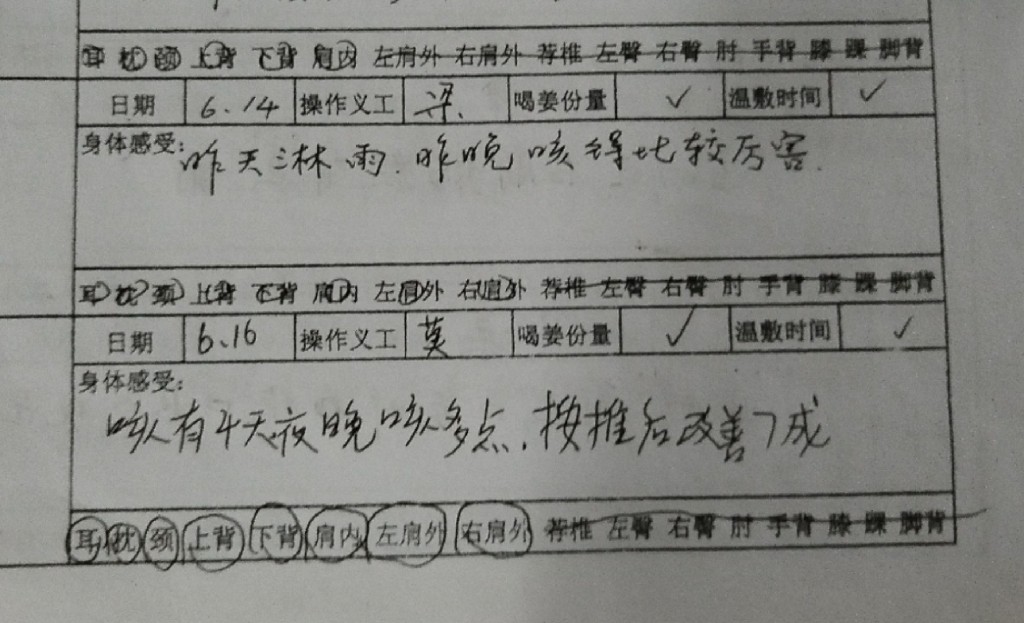 耳 枕 颈 上背 下背 肩内 左肩外 右肩外 荐椎 左臀 右臀 肘 手背 膝 踝 脚背
日期 6.14 操作义工 梁. 喝姜份量 ✓ 温敷时间 ✓
身体感受: 昨天三林雨. 昨晚咳得比较历害.
耳 枕 颈 上背 下背 肩内 左肩外 右肩外 荐椎 左臀 右臀 肘 手背 膝 踝 脚背
日期 6、16 操作义工 莫 喝姜份量 ✓ 温敷时间 ✓
身体感受:
咳有4天夜晚咳多点.按推后改善7成
耳 枕 颈 上背 下背 肩内 左肩外 右肩外 荐椎 左臀 右臀 肘 手背 膝 踝 脚背